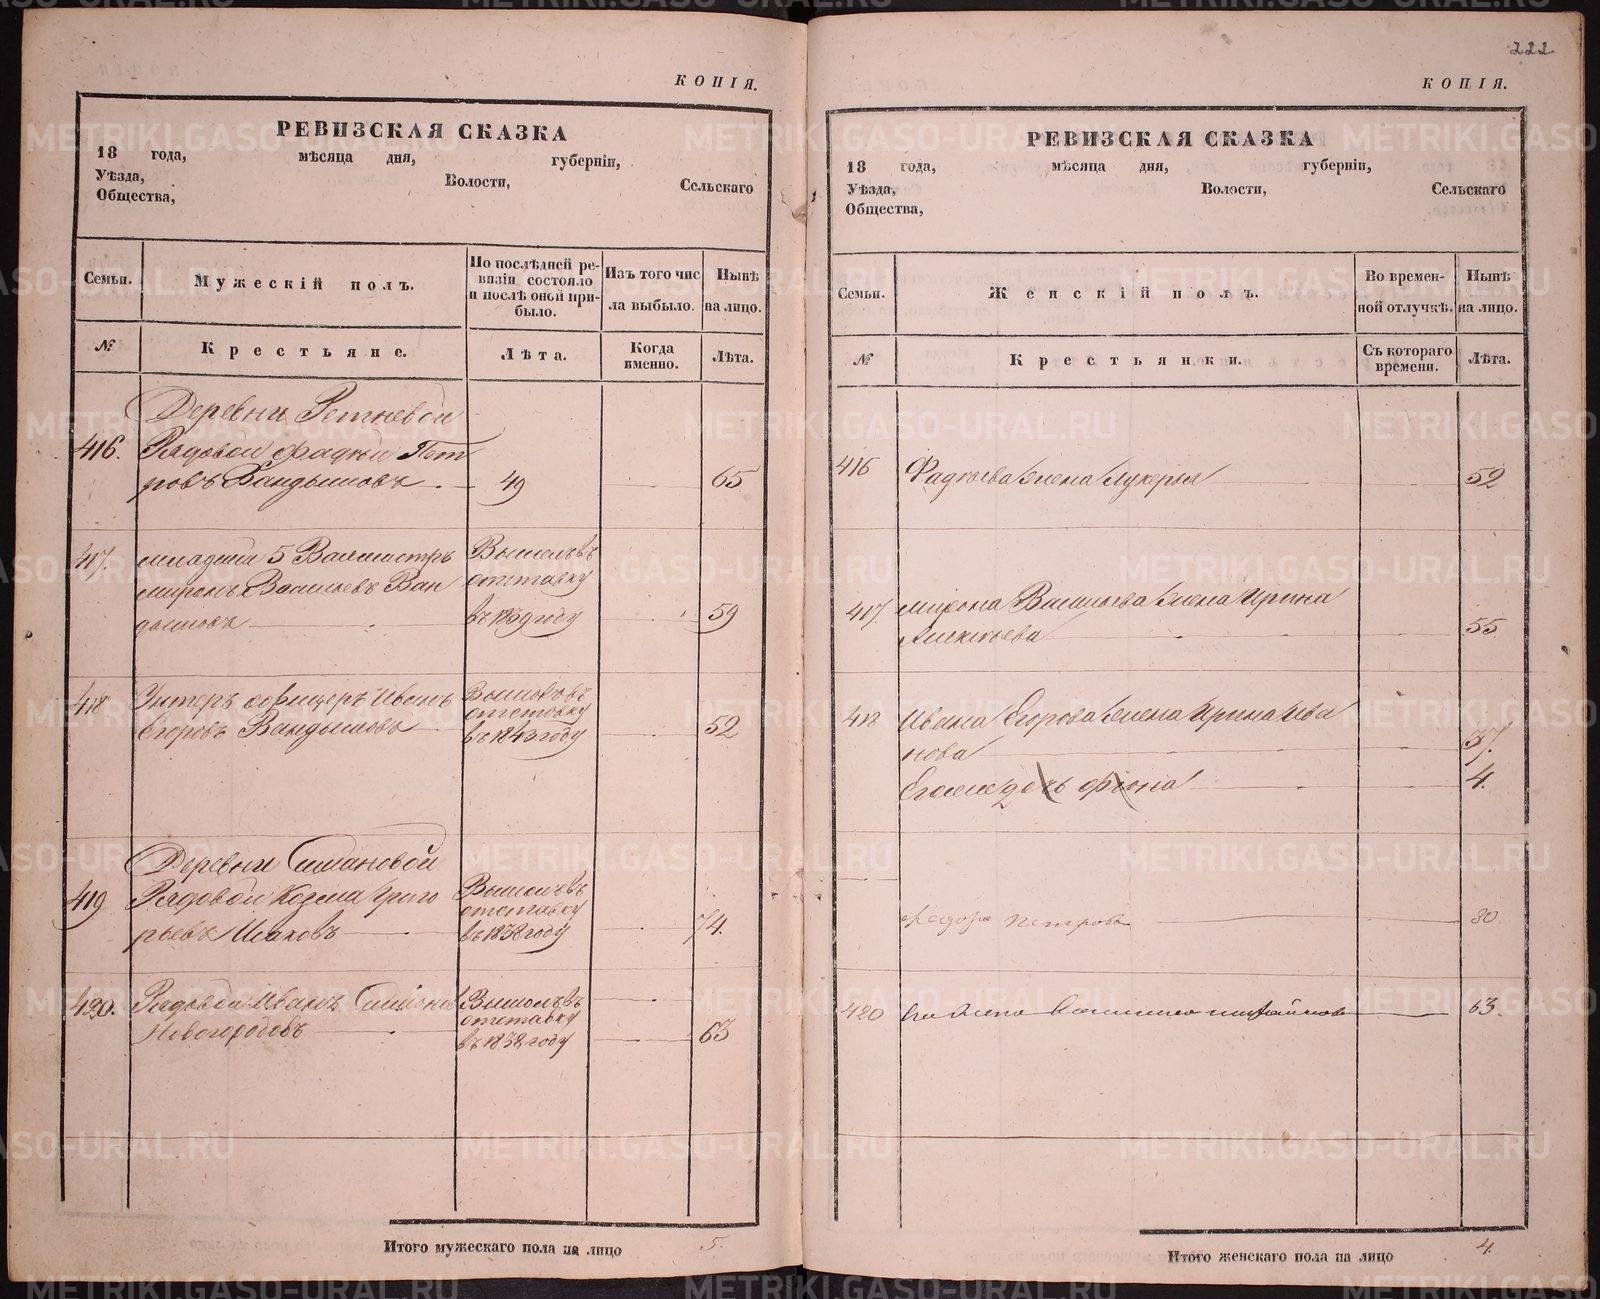 КОПІЯ.
РЕВИЗСКАЯ СКАЗКА
18 года, мѣсяца дня, губерніи,
Уѣзда, Волости, Сельскаго
Общества,
Семьи. Мужескій полъ. По послѣдней ре-
визіи состояло
и послѣ оной при-
было. Изъ того чис
ла выбыло. Нынѣ
на лицо.
№ Крестьяне. Лѣта. Когда
именно. Лѣта.
Деревни
416. Рядовой Фадѣй Пет
ровъ Вандышовъ 49 65
417. младшій Вахмистръ Вышелъ въ
миронъ Васильевъ Ван отставку
дышовъ въ 1839 году 59
418 Унтеръ офицеръ Иванъ Вышелъ въ
отставку
Егоровъ Вандышовъ въ 1843 году 52
Деревни
419 Рядовой Козма Григо Вышелъ въ
отставку
рьевъ Исаковъ въ 1838 году 74.
420. Рядовой Иванъ Вышелъ въ
Новогородовъ отставку
въ 1838 году 63
Итого мужескаго пола на лицо 5.
222
КОПІЯ.
РЕВИЗСКАЯ СКАЗКА
18 года, мѣсяца дня, губерніи,
Уѣзда, Волости, Сельскаго
Общества,
Семьи. Женскій полъ. Во времен-
ной отлучкѣ. Нынѣ
на лицо.
№ Крестьянки. Съ котораго
времени. Лѣта.
416 Фадѣева жена Лукерья 52
417 мирона Васильева жена Ирина
Алексѣева 55
418 Ивана Егорова жена Ирина Ива
нова 37.
дочь 4.
Петрова 80.
420 Его жена 63.
Итого женскаго пола на лицо 4.
METRIKI.GASO-URAL.RU